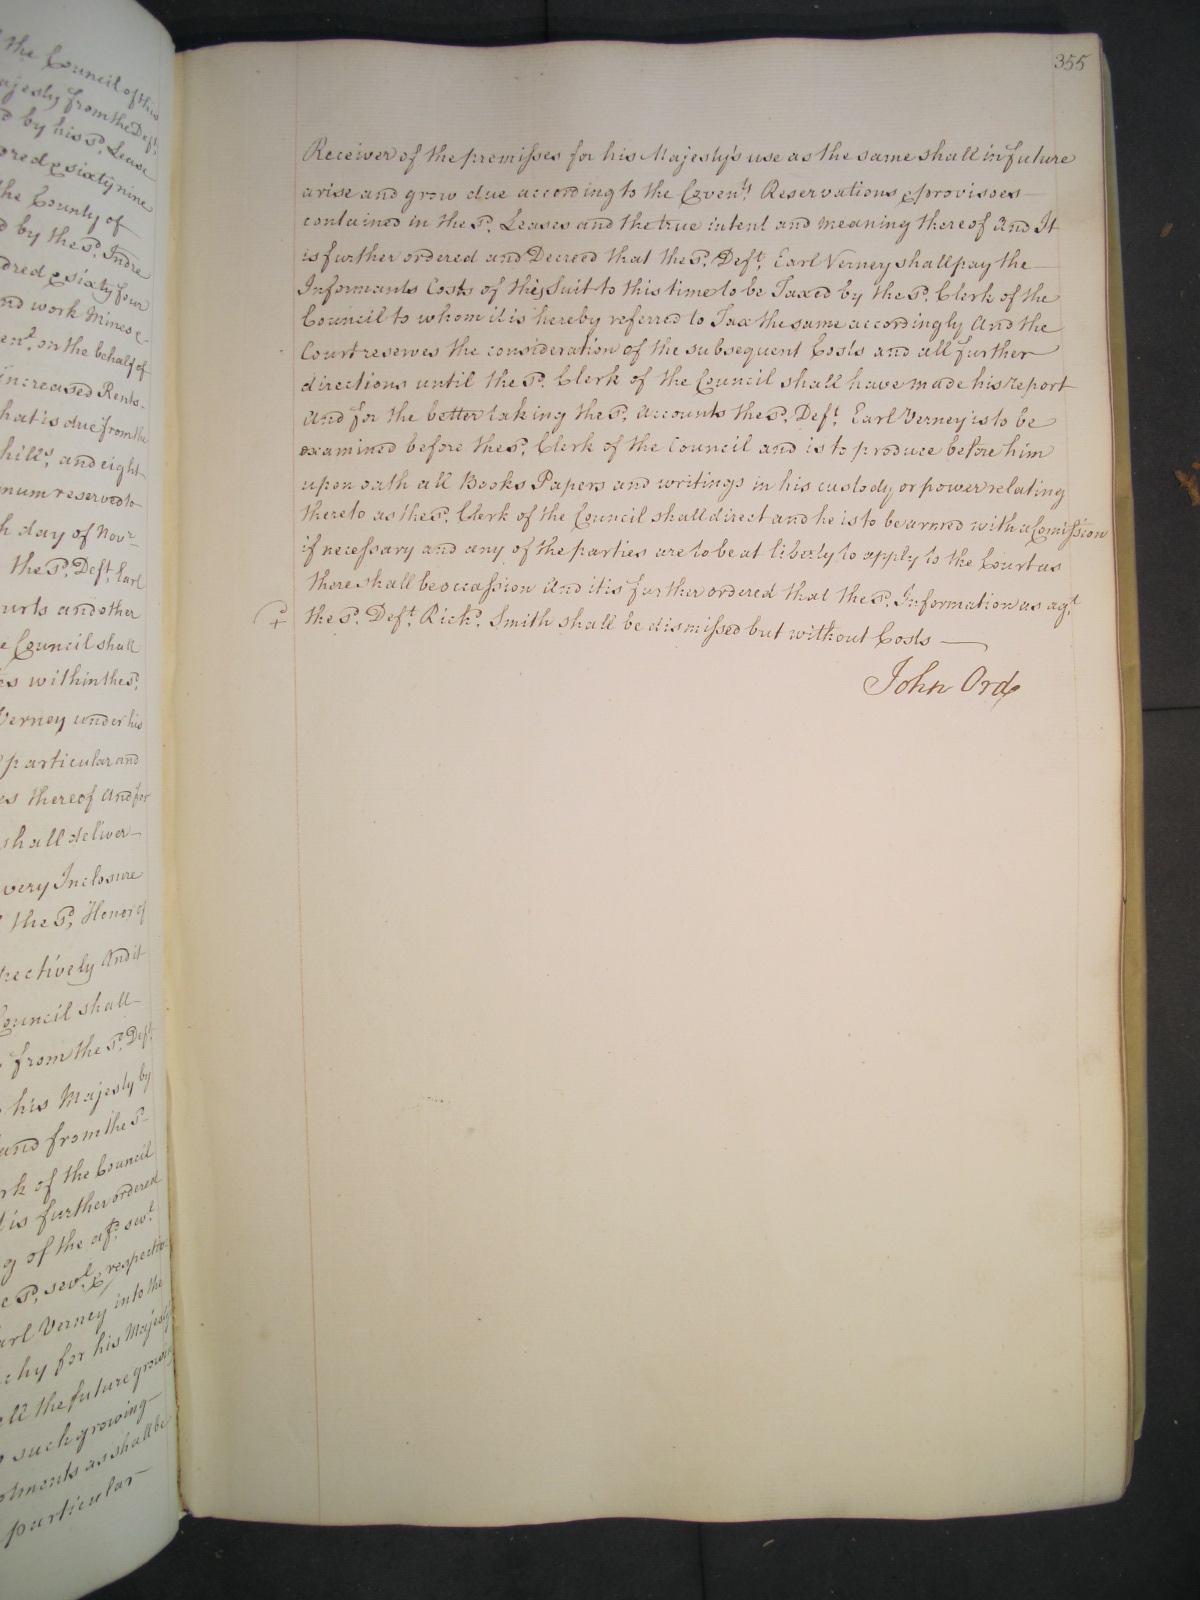 the Council of this
Majesty from the Deft.
by his Sd. Lease
dred & sixty nine
the County of
d by the Sd. Indre
dred & sixty four
and work Mines &
ent. on the behalf of
increased Rents
that is due from the
hills, and eight
num reserved to
h day of Novr
the Sd. Deft. Earl
urts and other
e Council shall
es within the Sd.
Verney under his
particular and
es thereof And for
shall deliver
very Inclosure
the Sd. Honor of
pectively And it
Council shall
from the Sd. Deft.
his Majesty by
and from the Sd
rk of the Council
is further ordered
g of the afd. sevl.
e Sd. sevl. & respective
arl Verney into the
chy for his Majesty
ell the future growing
such growing
tments as shall be
particular
355
Receiver of the premisses for his Majesty's use as the same shall in future
arise and grow due according to the Covents. Reservations & provisoes
contained in the Sd. Leases and the true intent and meaning thereof And It
is further ordered and Decreed that the Sd. Deft. Earl Verney shall pay the
Informants Costs of this Suit to this time to be Taxed by the Sd. Clerk of the
Council to whom it is hereby referred to Tax the same accordingly And the
Court reserves the consideration of the subsequent Costs and all further
directions until the Sd. Clerk of the Council shall have made his report
And for the better taking the Sd. Accounts the Sd. Deft. Earl Verney is to be
examined before the Sd. Clerk of the Council and is to produce before him
upon oath all Books Papers and writings in his custody or power relating
thereto as the Sd. Clerk of the Council shall direct and he is to be armed with a Comission
if necessary and any of the parties are to be at liberty to apply to the Court as
there shall be occassion And it is further ordered that the Sd. Information as agt.
the Sd. Deft. Richd. Smith shall be dismissed but without Costs
John Ord